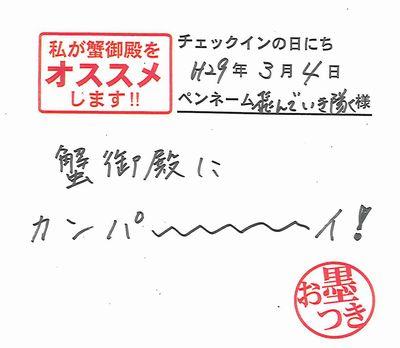 私が蟹御殿を
オススメ
します!!
チェックインの日にち
H29年3月4日
ペンネーム飛んでいき隊様
蟹御殿に
カンパ〜〜〜〜イ!
お墨つき